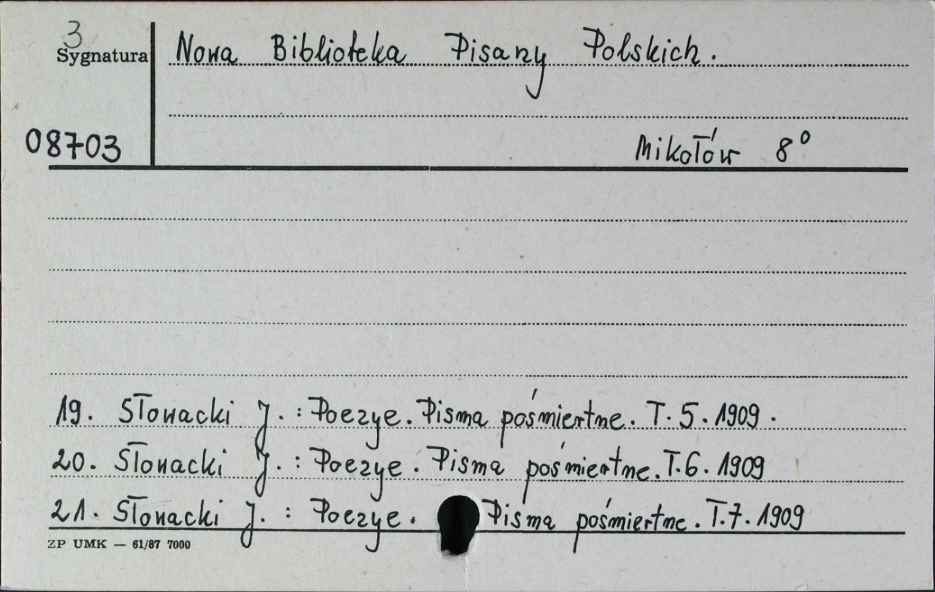 3
Sygnatura
Nowa Biblioteka Pisarzy Polskich.
08703
Mikołów 8°
19. Słowacki J. : Poezye. Pisma pośmiertne. T. 5. 1909.
20. Słowacki J. : Poezye. Pisma pośmiertne. T. 6. 1909
21. Słowacki J. : Poezye. Pisma pośmiertne. T. 7. 1909
ZP UMK — 61/87 7000